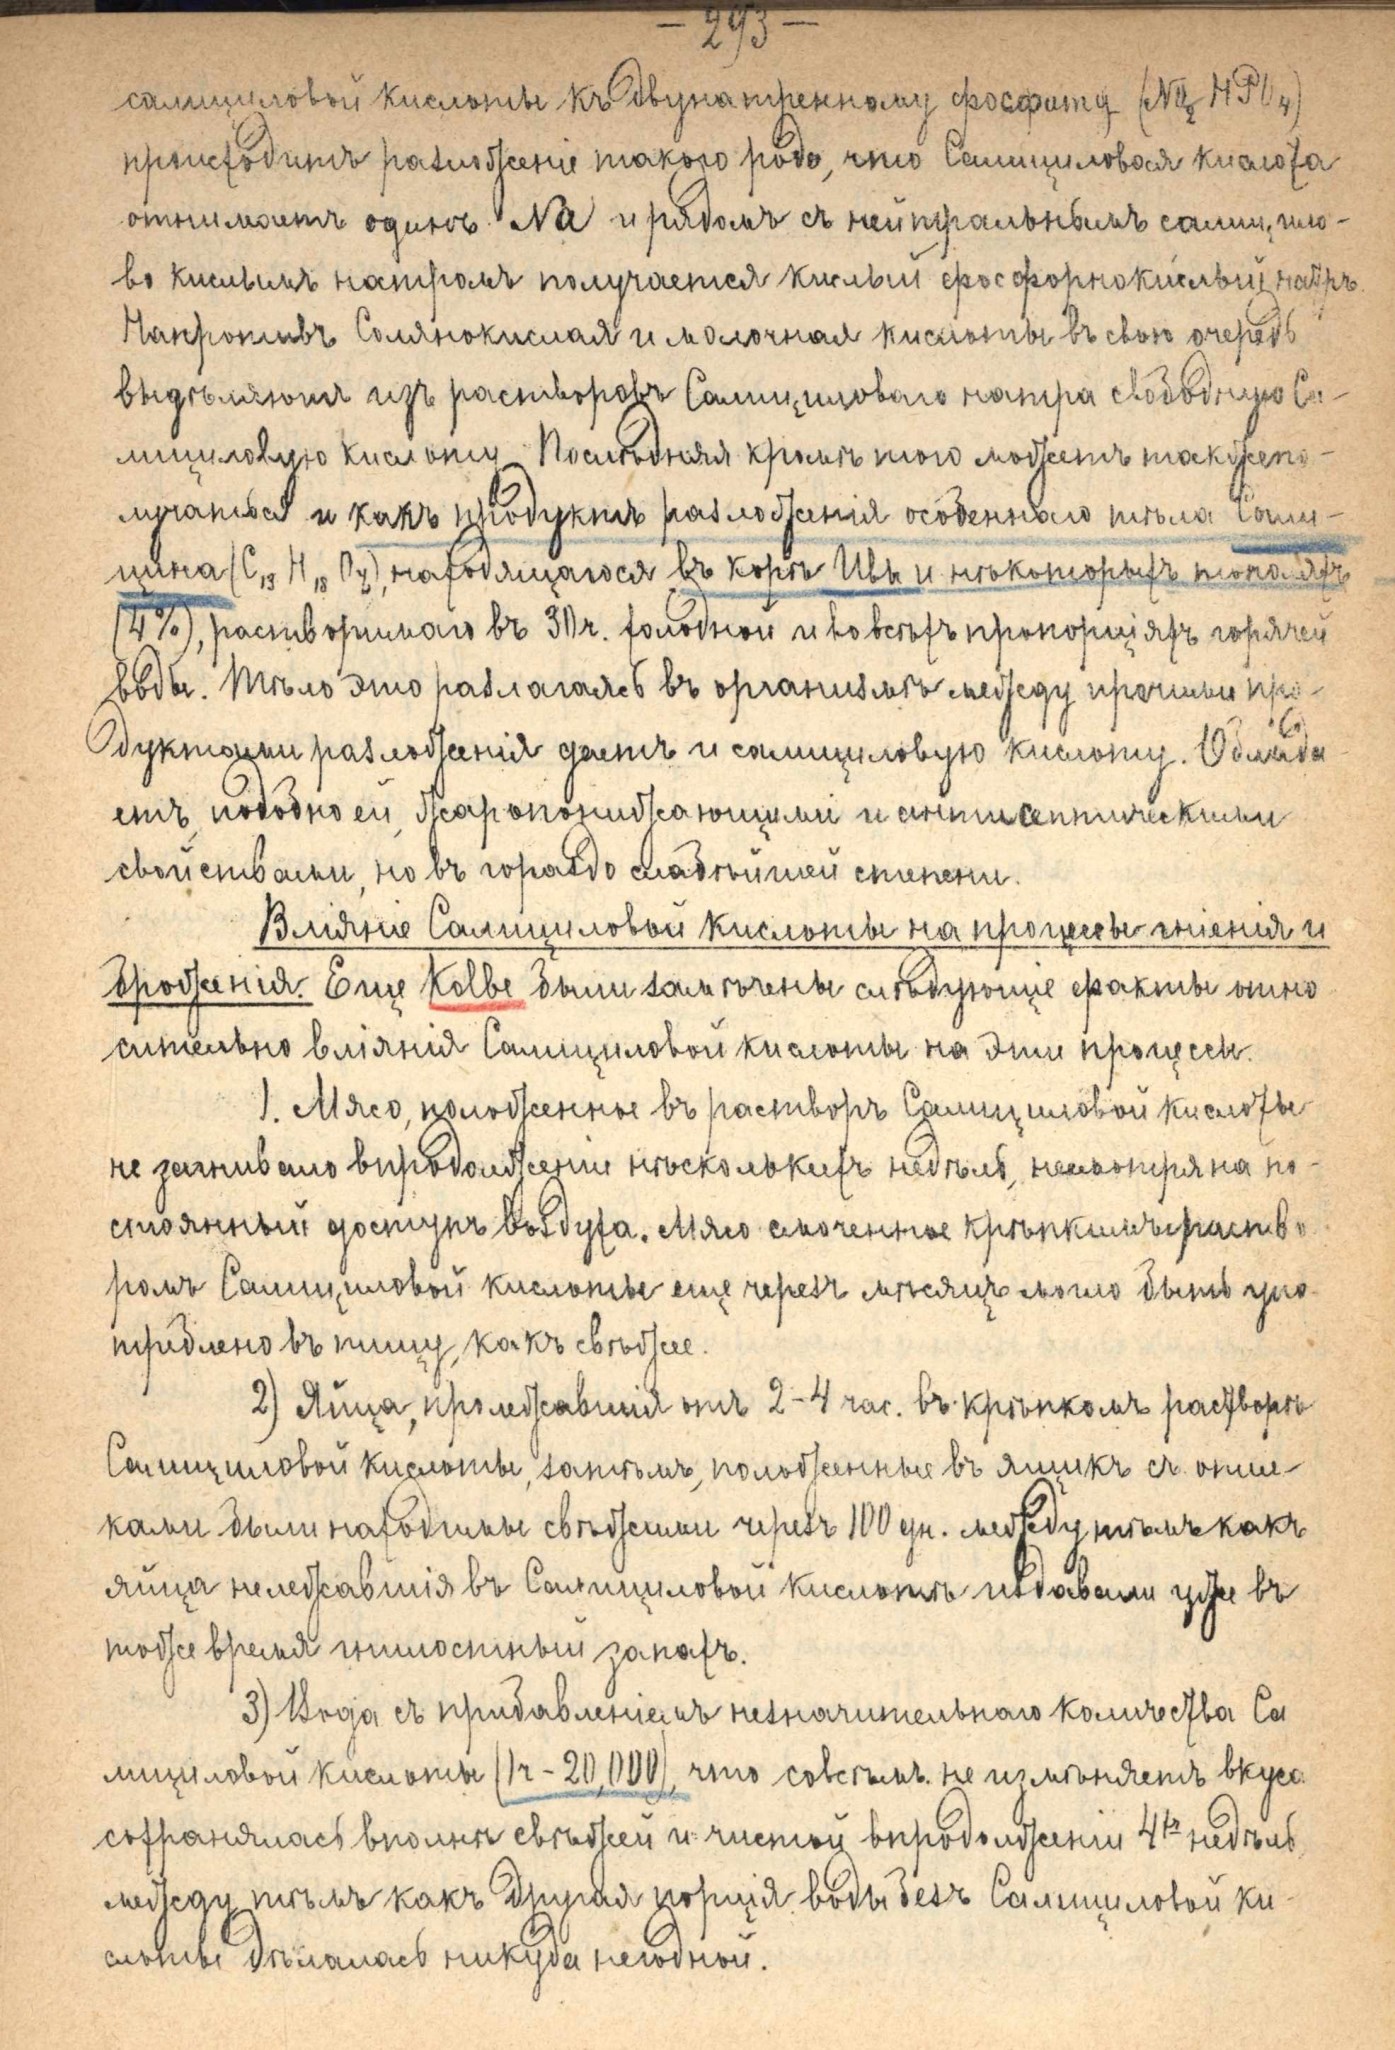 — 293 —
салициловой кислоты къ двунатренному фосфату (Na₂ HPO₄)
происходитъ разложеніе такого рода, что Салициловая кислота
отнимаетъ одинъ Na и рядомъ съ нейтральнымъ салицило-
во кислымъ натромъ получается кислый фосфорнокислый натръ.
Напротивъ Солянокислая и молочная кислоты въ свою очередь
выдѣляютъ изъ растворовъ Салициловаго натра свободную Са-
лициловую кислоту Послѣдняя кромѣ того можетъ также по-
лучаться и какъ продуктъ разложенія особеннаго тѣла Сали-
цина (C₁₃ H₁₈ O₇), находящагося въ корѣ Ивы и нѣкоторыхъ тополяхъ
(4%), растворимаго въ 30 ч. холодной и во всѣхъ пропорціяхъ горячей
воды. Тѣло это разлагаясь въ организмѣ между прочими про-
дуктами разложенія даетъ и салициловую кислоту. Облада-
етъ, подобно ей, жаропонижающими и антисептическими
свойствами, но въ гораздо слабѣйшей степени.
Вліяніе Салициловой кислоты на процессы гніенія и
броженія. Еще Kolbe были замѣчены слѣдующіе факты отно
сительно вліянія Салициловой кислоты на эти процессы.
1. Мясо, положенное въ растворъ Салициловой кислоты
не загнивало впродолженіи нѣсколькихъ недѣль, несмотря на по-
стоянный доступъ воздуха. Мясо смоченное крѣпкимъ раство
ромъ Салициловой кислоты еще черезъ мѣсяцъ могло быть упо-
треблено въ пищу, какъ свѣжее.
2) Яйца, пролежавшія отъ 2–4 час. въ крѣпкомъ растворѣ
Салициловой кислоты, затѣмъ, положенные въ ящикъ съ опил-
ками были находимы свѣжими черезъ 100 дн. между тѣмъ какъ
яйца нележавшія въ Салициловой кислотѣ издавали уже въ
тоже время гнилостный запахъ.
3) Вода съ прибавленіемъ незначительнаго количества Са
лициловой кислоты (1ч – 20,000), что совсѣмъ не измѣняетъ вкуса
сохранялась вполнѣ свѣжей и чистой впродолженіи 4ᵉˣ недѣль,
между тѣмъ какъ другая порція воды безъ Салициловой ки-
слоты дѣлалась никуда негодной.